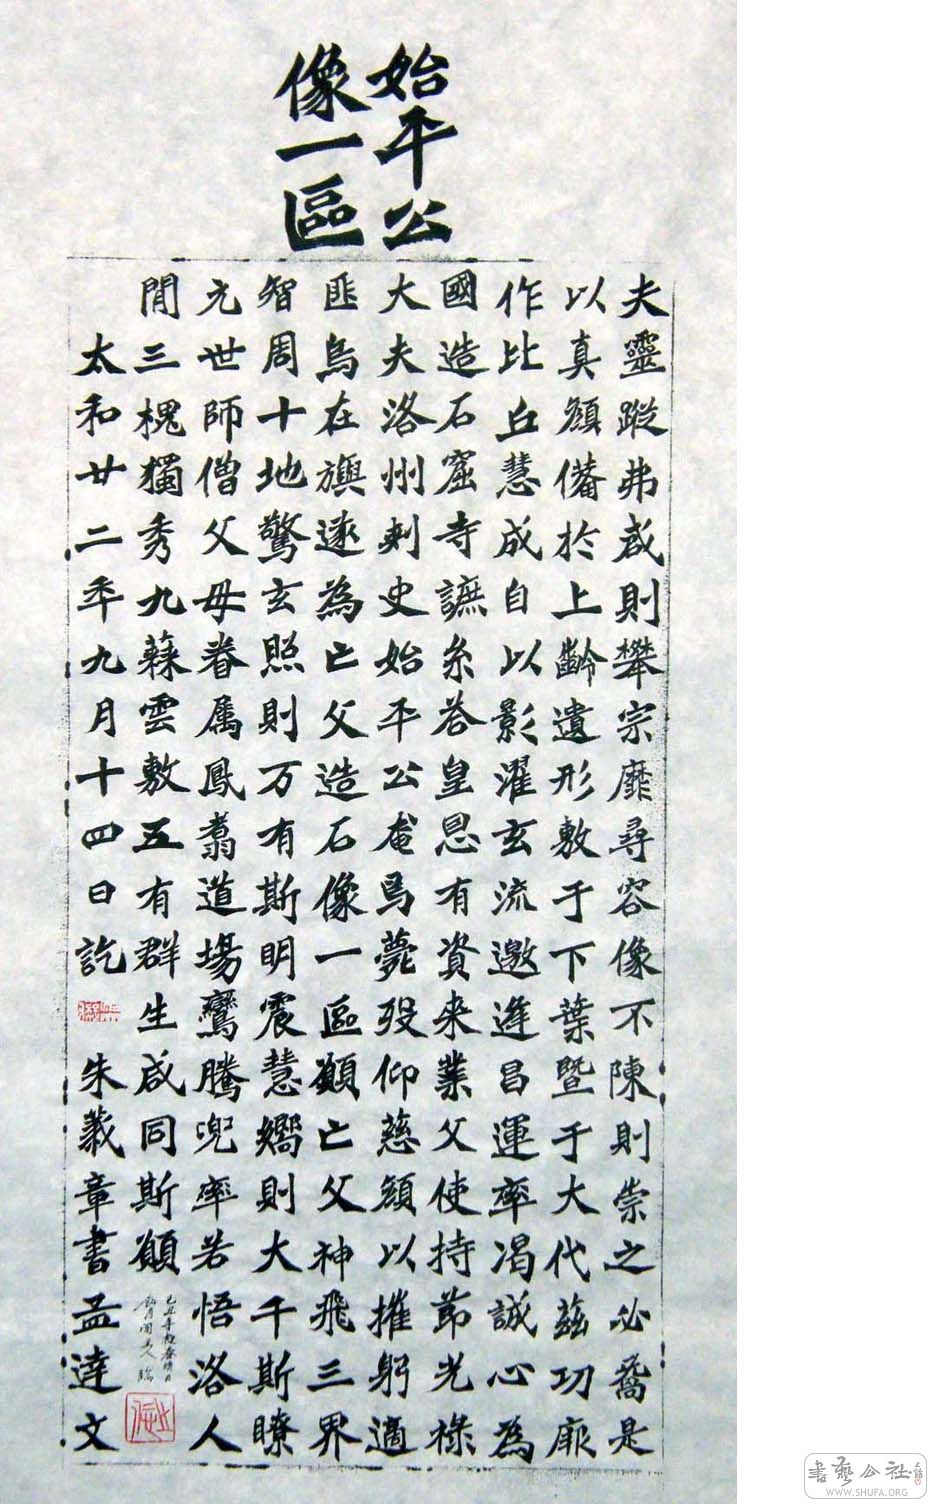 始平公
像一區
夫靈蹤弗啟則攀宗靡尋容像不陳則崇之必喬是
以真顏備於上齡遺形敷于下葉暨于大代茲功厥
作比丘慧成自以影濯玄流邀逢昌運率渴誠心為
國造石窟寺糸答皇恩有資来業父使持節光祿
大夫洛州刾史始平公奄焉薨殁仰慈顏以摧躬適
匪烏在遂為亡父造石像一區願亡父神飛三界
智周十地驚玄照則万有斯明震慧嚮則大千斯瞭
元世師僧父母眷属鳳翥道場鸞騰兜率若悟洛人
閒三槐獨秀九蕀雲敷五有群生咸同斯願
太和廿二年九月十四日訖 朱義章書孟達文
書藝公社
WWW.SHUFA.ORG